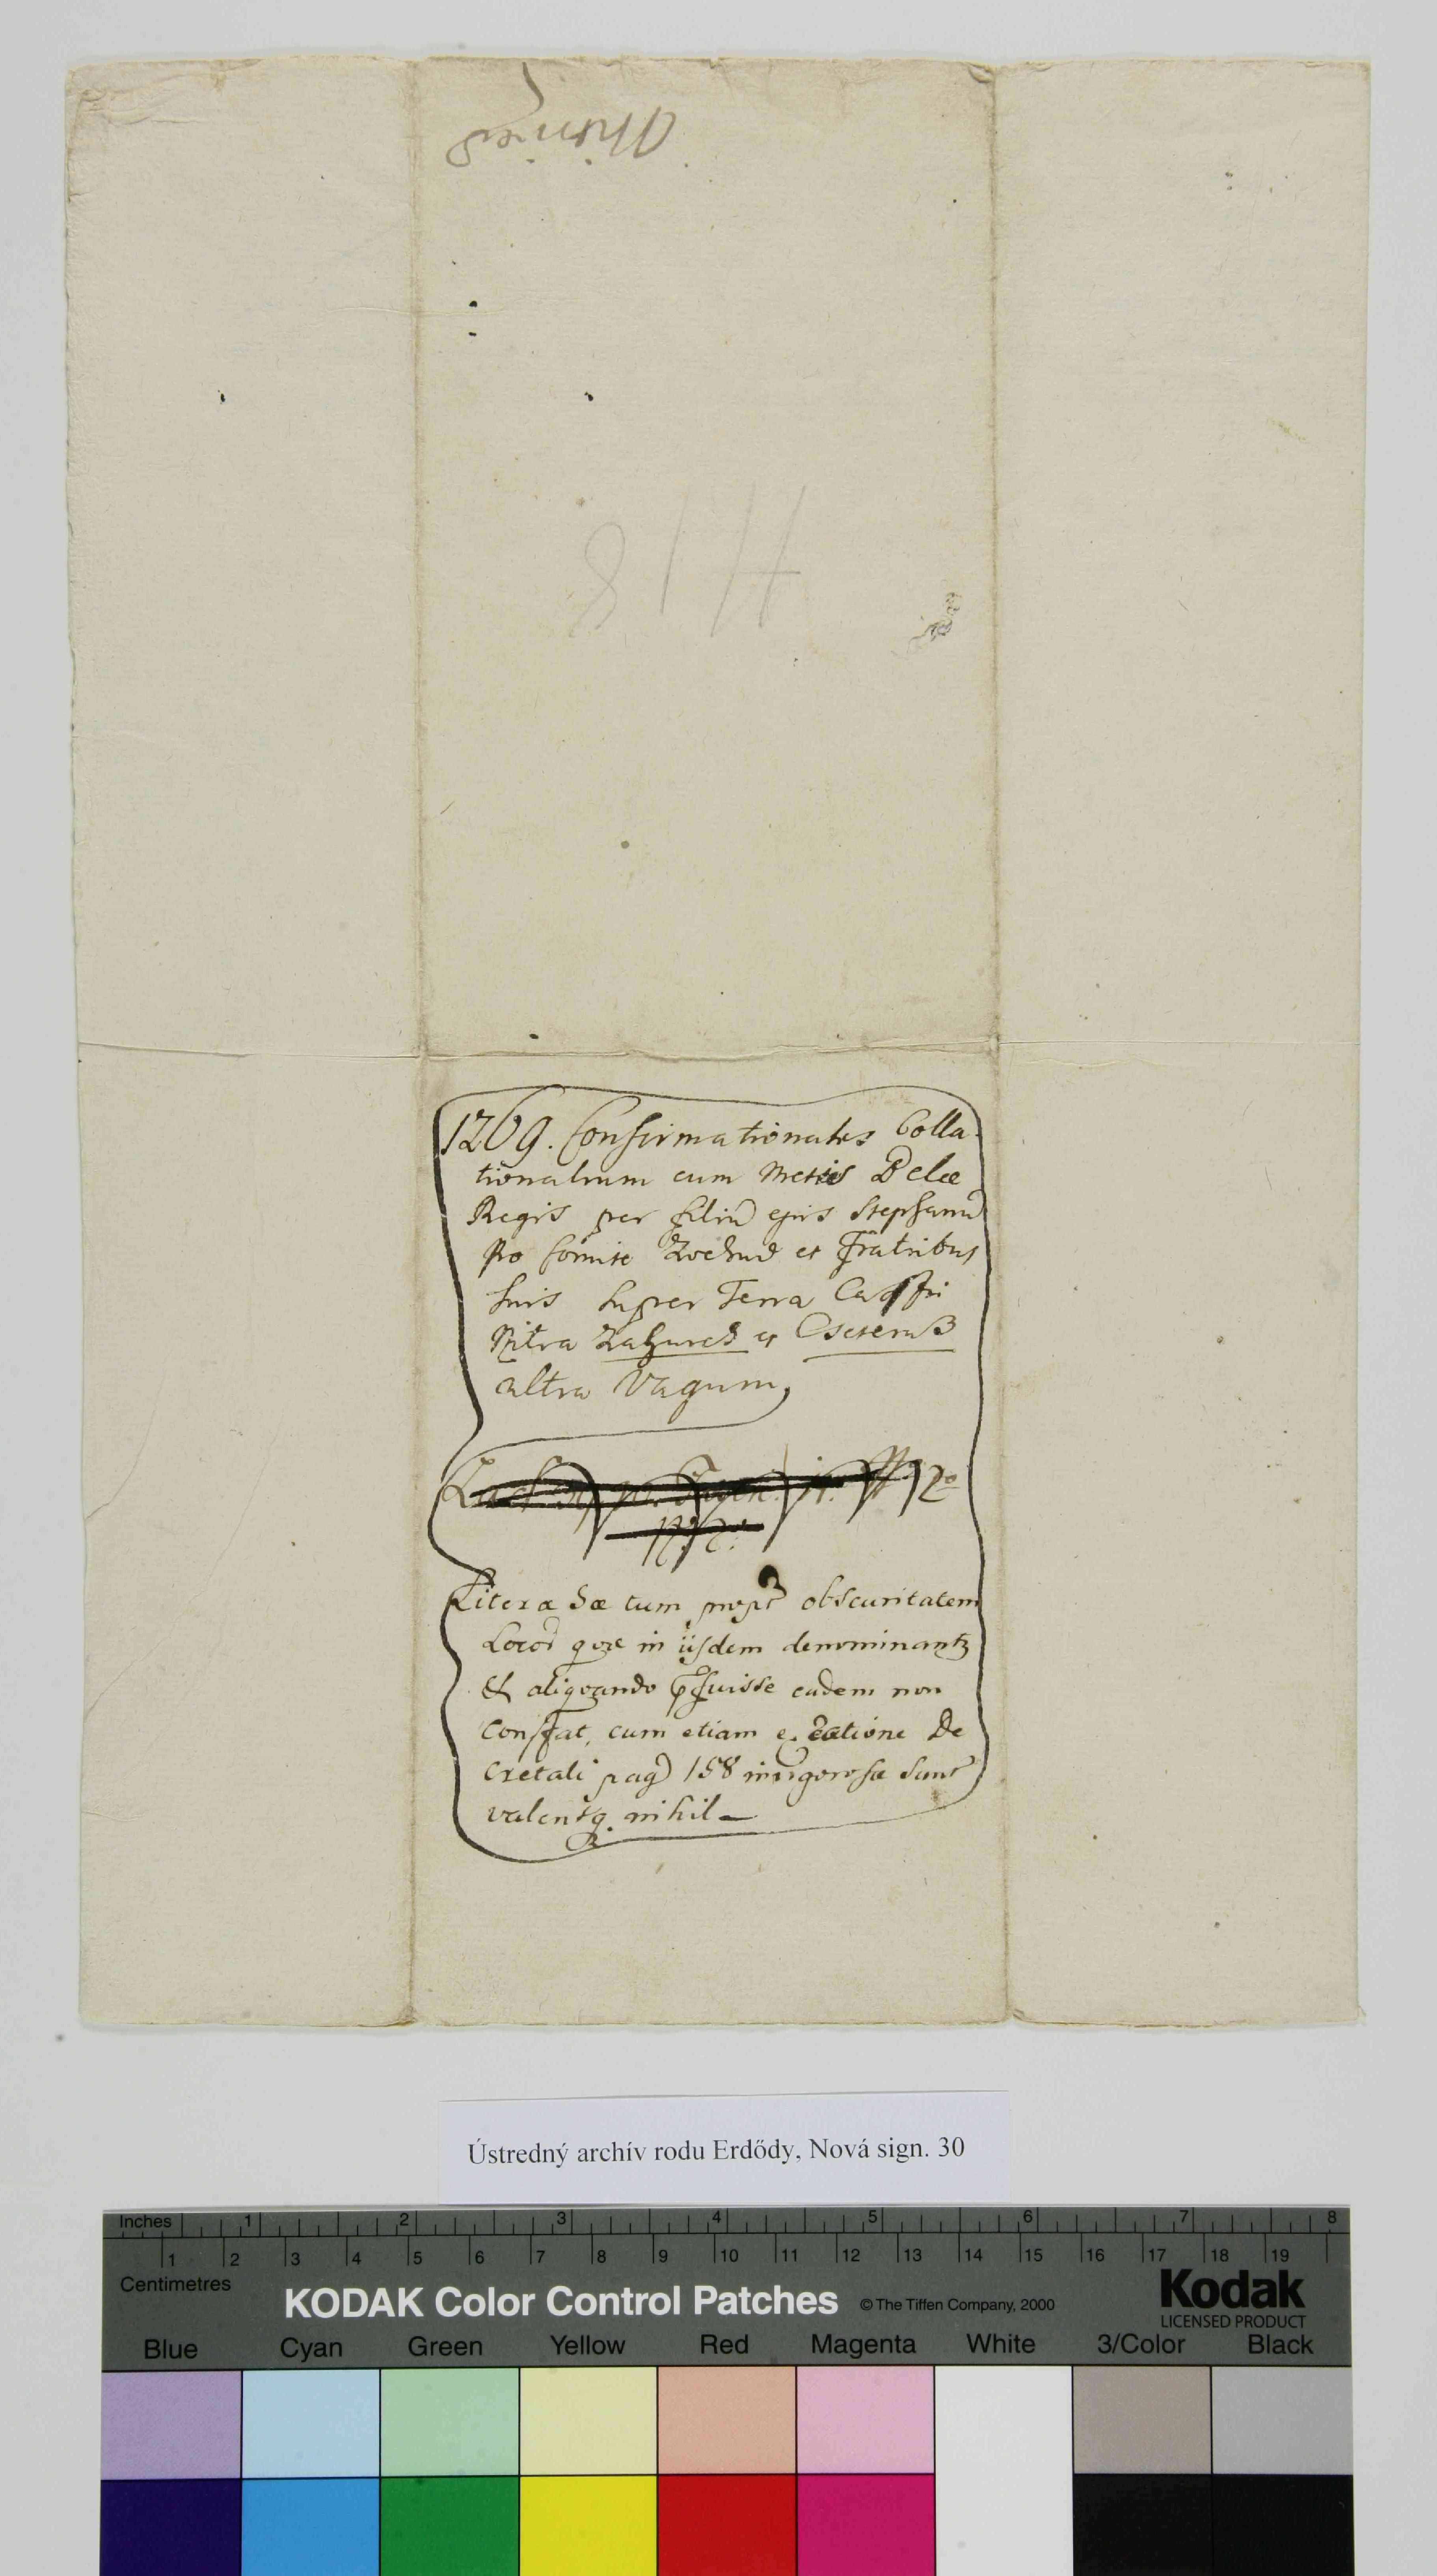 418
1269. Confirmationales Colla-
tionalium cum Metis Belæ
Regis per filiū ejus Stephanū
pro Comite Zochud et Fratribus
suis super Terra Castri
Nitra Zahurch et Cseterus
ultra Vagum,
Literæ hæ tum propt obscuritatem
Locoꝝ qvæ in iisdem denominantꝫ
Et aliqvando fuisse eadem non
Constat, cum etiam ex ratione De
cretali pag 158 invigorosæ sunt
valentqꝫ nihil –
Ústredný archív rodu Erdődy, Nová sign. 30
Inches 1 2 3 4 5 6 7 8
1 2 3 4 5 6 7 8 9 10 11 12 13 14 15 16 17 18 19
Centimetres
KODAK Color Control Patches © The Tiffen Company, 2000
Kodak
LICENSED PRODUCT
Blue Cyan Green Yellow Red Magenta White 3/Color Black